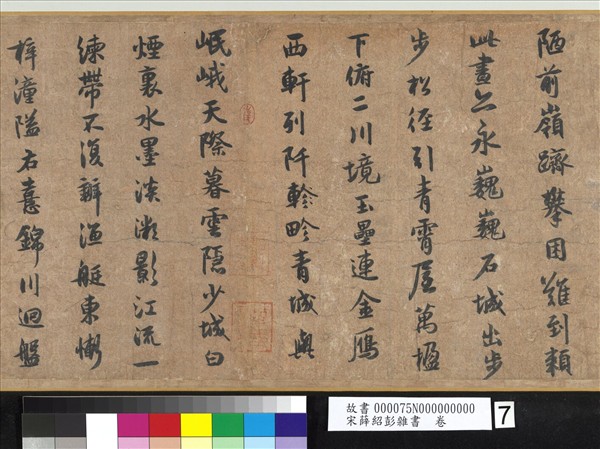 陋前嶺躋攀困難到頹
此畫亦永巍巍石城出步
步松徑引青霄屋萬堞
下俯二川境玉壘連金鴈
西軒列阡軫畛青城與
岷峨天際暮雲隱少城白
煙裏水墨淡瀨影江流一
練帶不復辨漁艇東慚
梓潼隘右憙錦川迴盤
故書 000075N000000000
宋薛紹彭雜書 卷
7